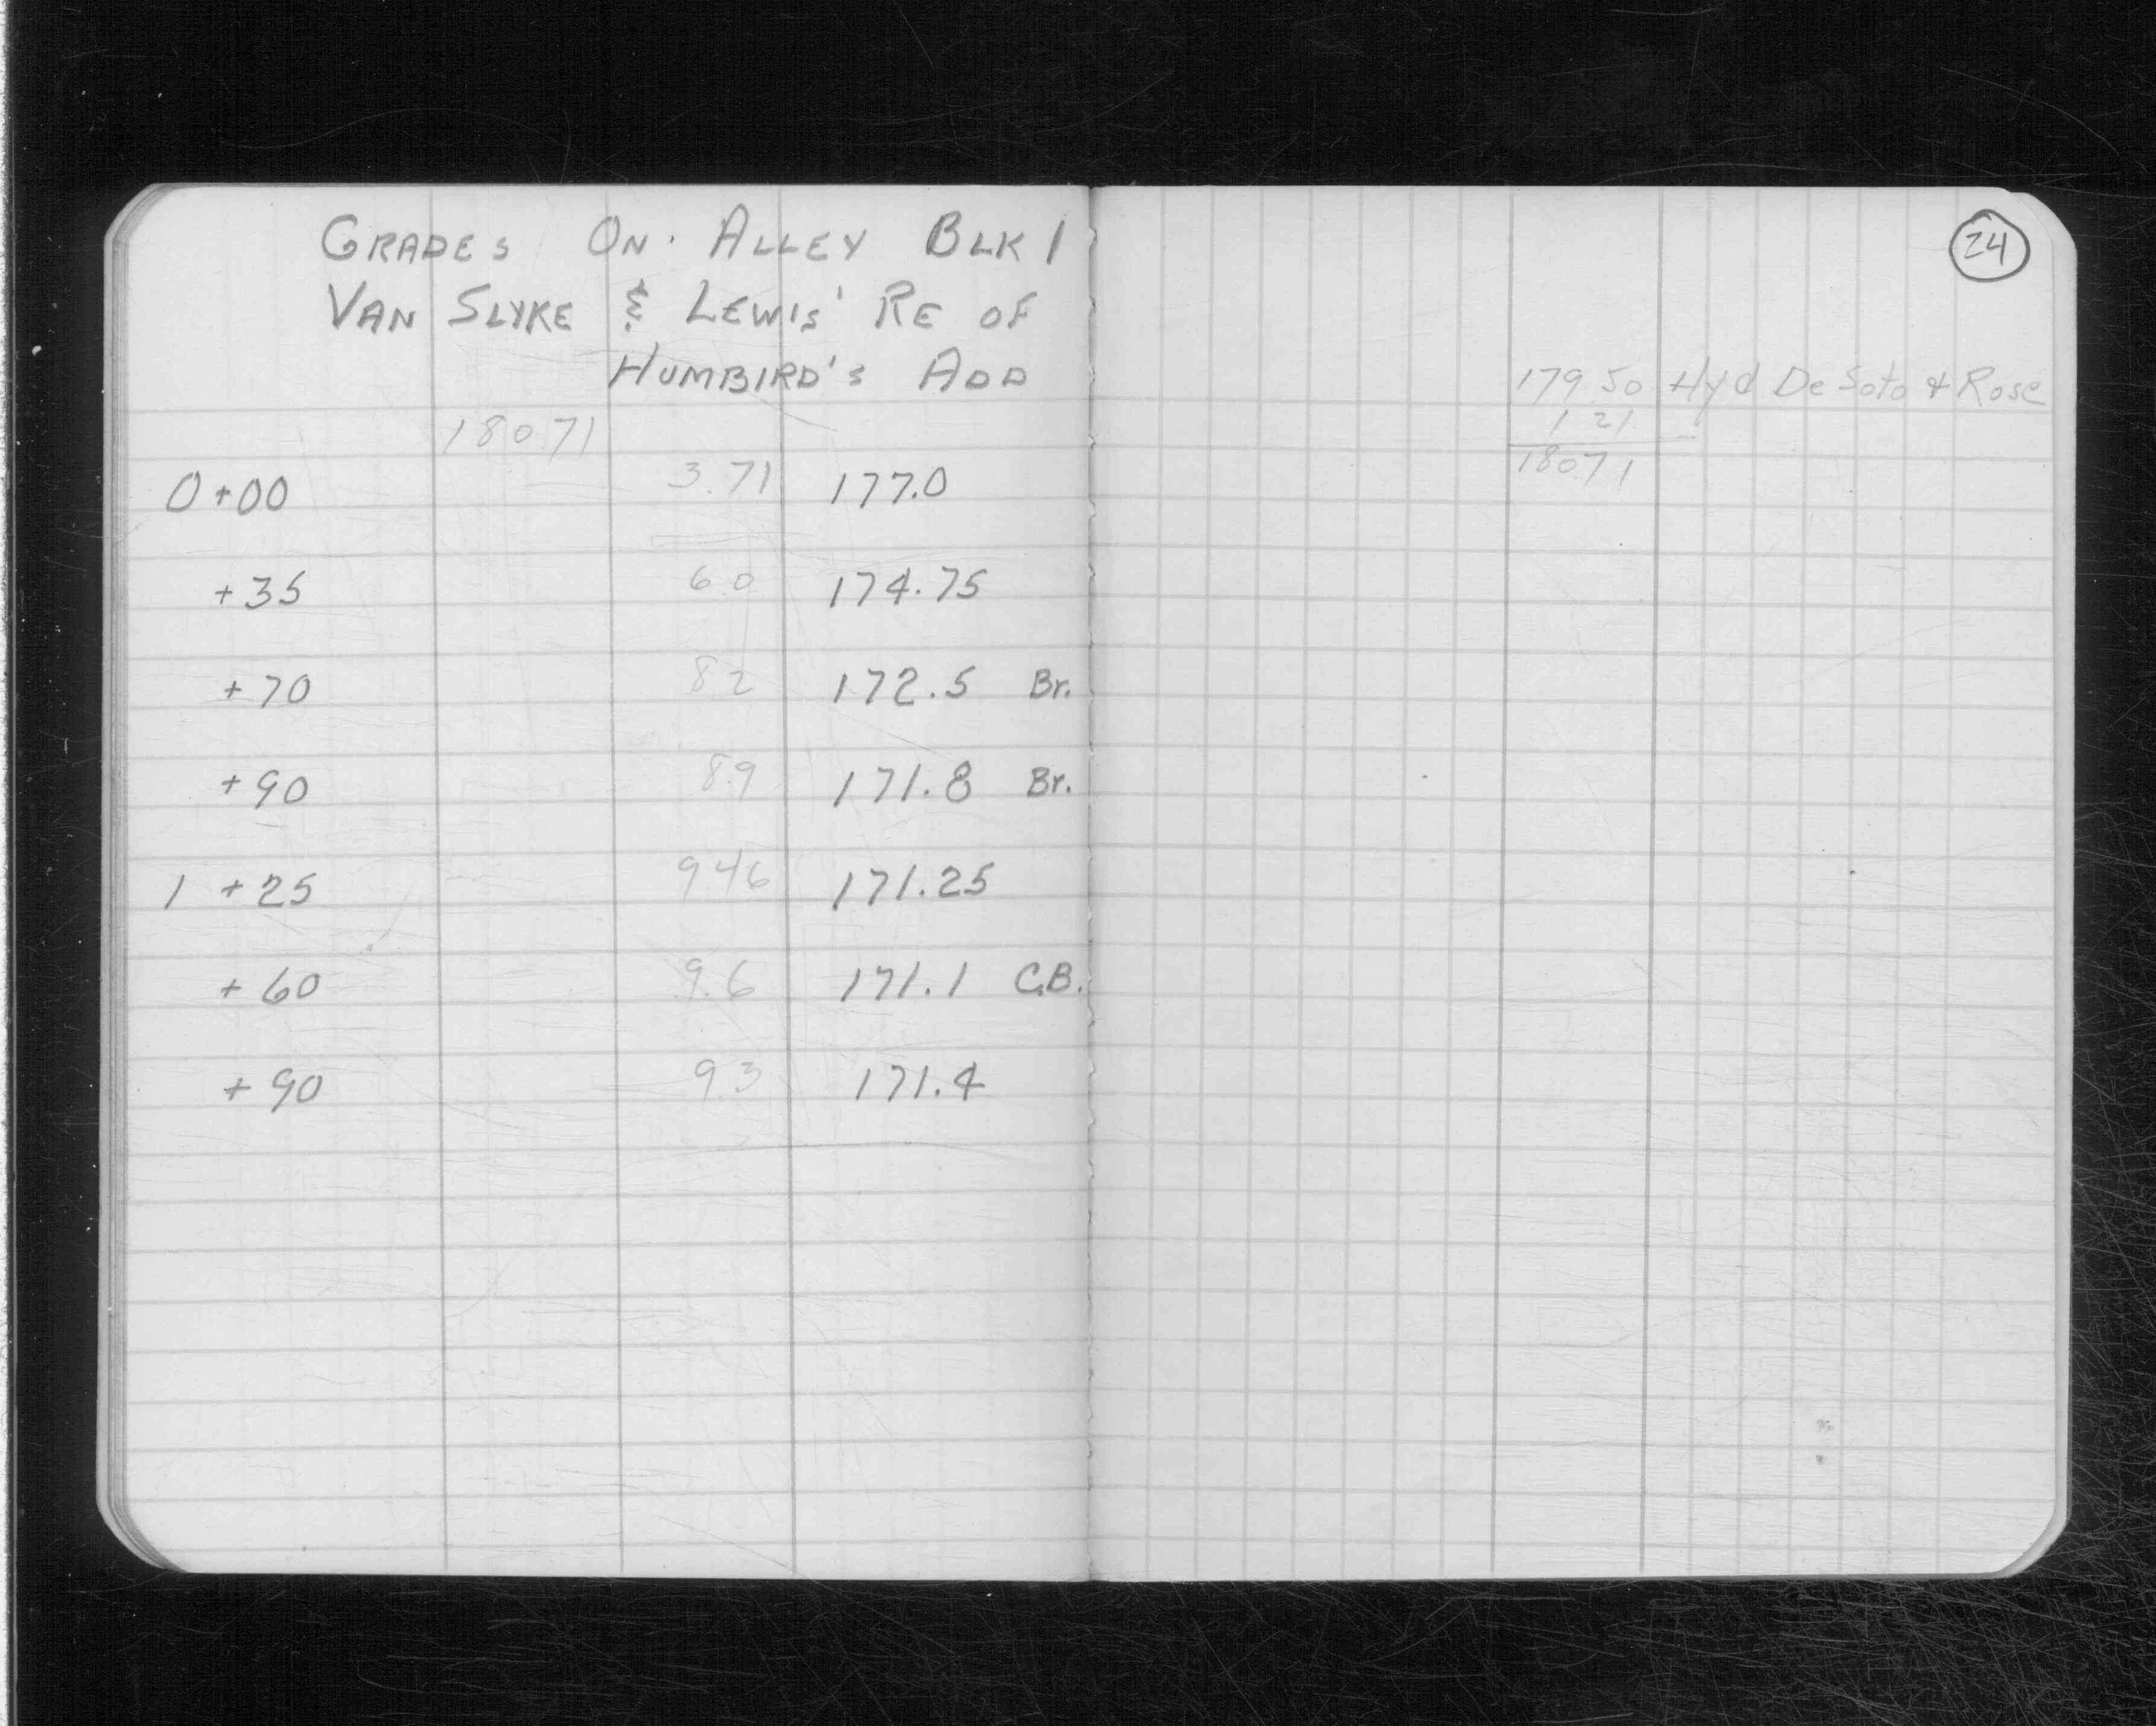 GRADES ON ALLEY BLK 1
VAN SLYKE & LEWIS' RE OF
HUMBIRD'S ADD
18071
0+00 3.71 177.0
+35 6 0 174.75
+70 8 2 172.5 Br.
+90 8.9 171.8 Br.
1 +25 9 46 171.25
+60 9.6 171.1 C.B.
+90 9 3 171.4
24
179 50 Hyd De Soto & Rose
1 21
18071